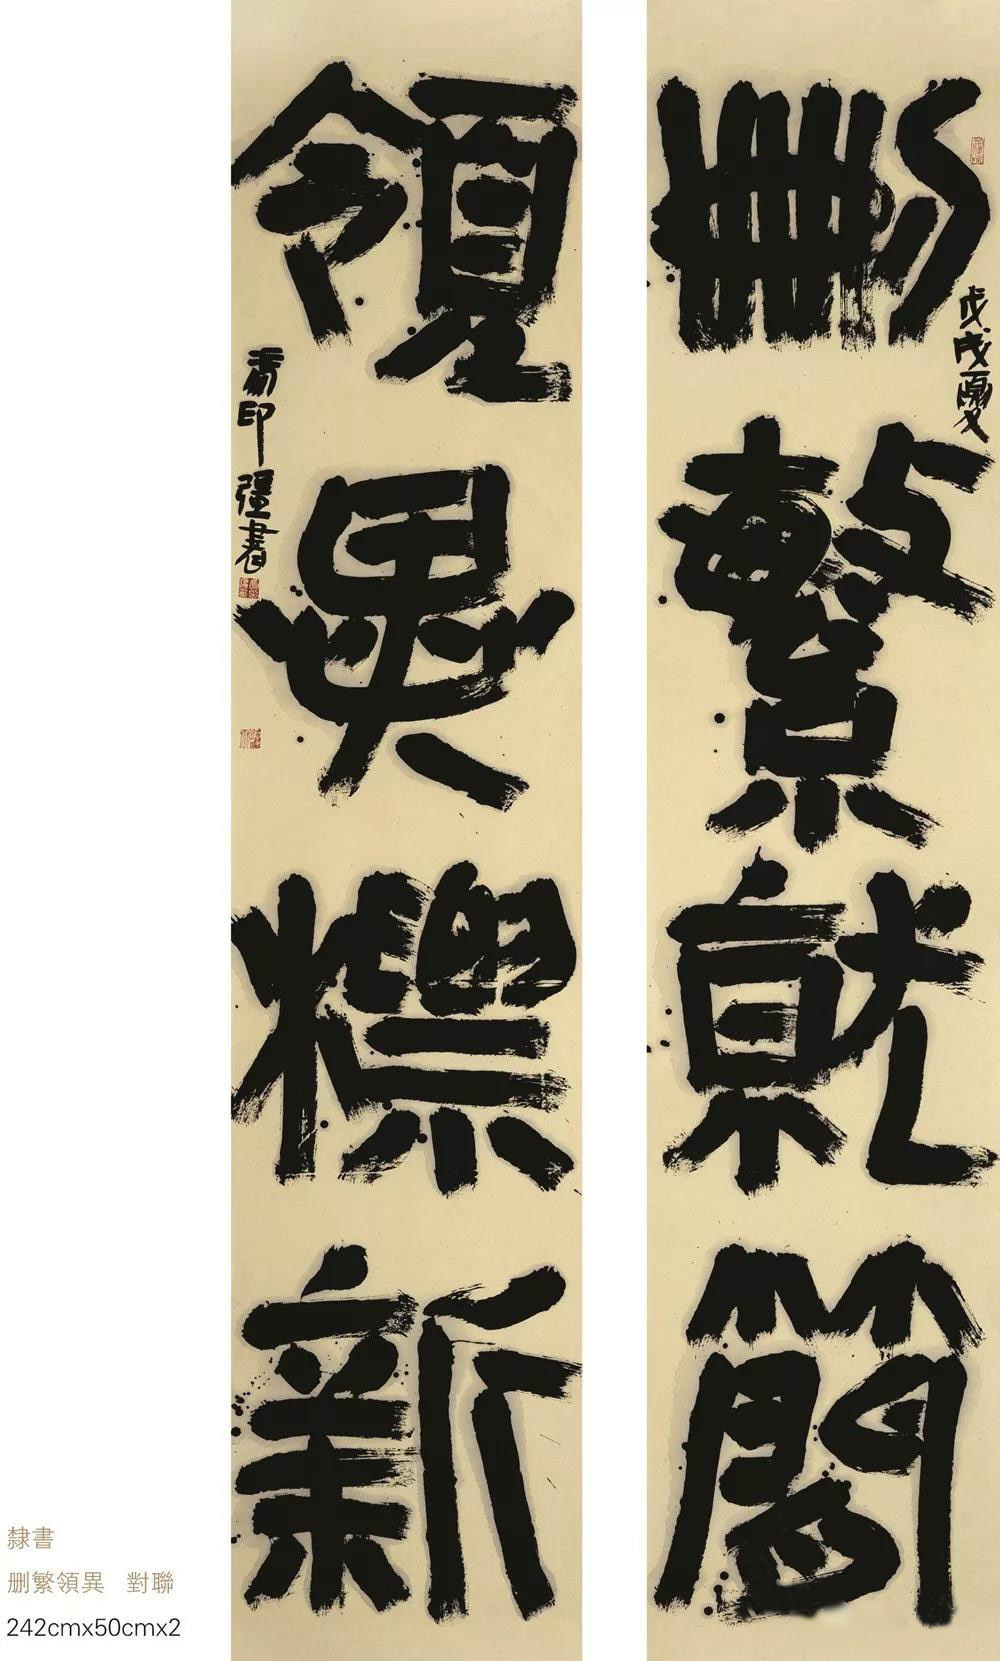 删繁就簡
戊戌夏
領異標新
喬印彊書
隸書
删繁領異 對聯
242cmx50cmx2